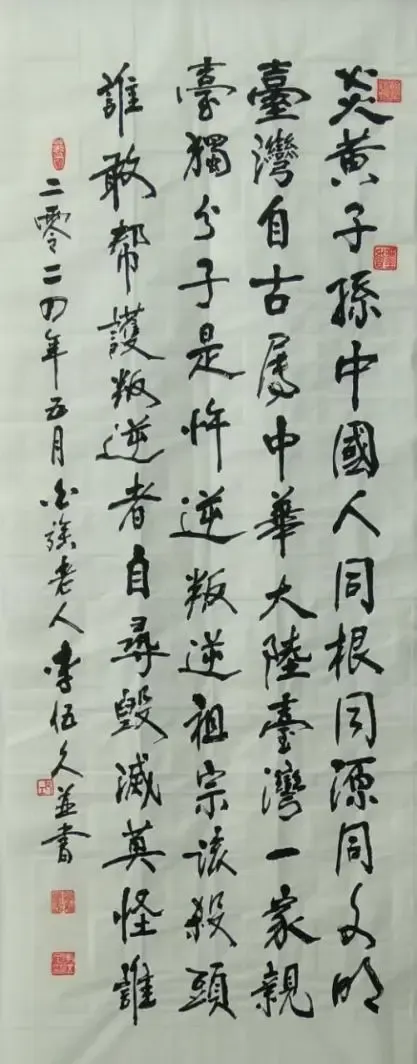 炎黄子孫中國人同根同源同文明
臺灣自古屬中華大陸臺灣一家親
臺獨分子是忤逆叛逆祖宗該殺頭
誰敢幫護叛逆者自尋毀滅莫怪誰
二零二四年五月白族老人李伍久並書